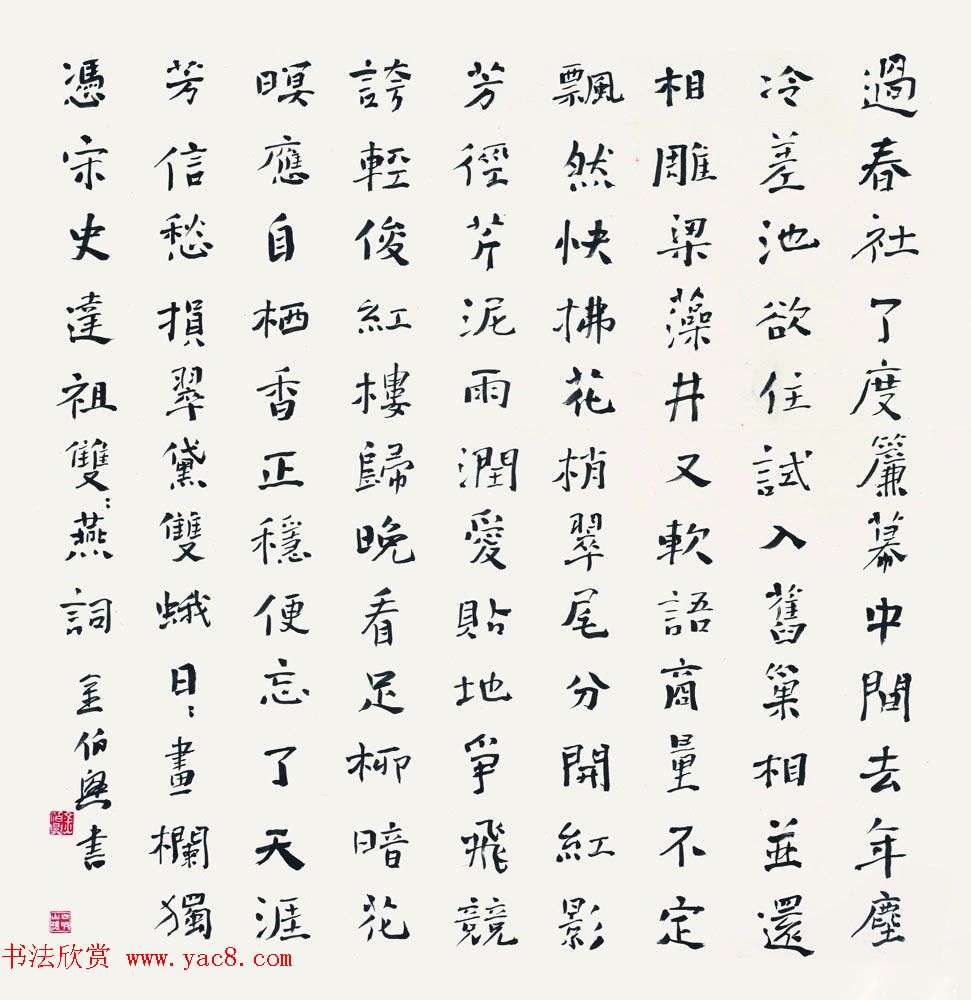 過春社了度簾幕中間去年塵
冷差池欲住試入舊巢相並還
相雕梁藻井又軟語商量不定
飄然快拂花梢翠尾分開紅影
芳徑芹泥雨潤愛貼地爭飛競
誇輕俊紅樓歸晚看足柳暗花
暝應自栖香正穩便忘了天涯
芳信愁損翠黛雙蛾日〻畫欄獨
憑宋史達祖雙〻燕詞
金伯興書
书法欣赏 www.yac8.com